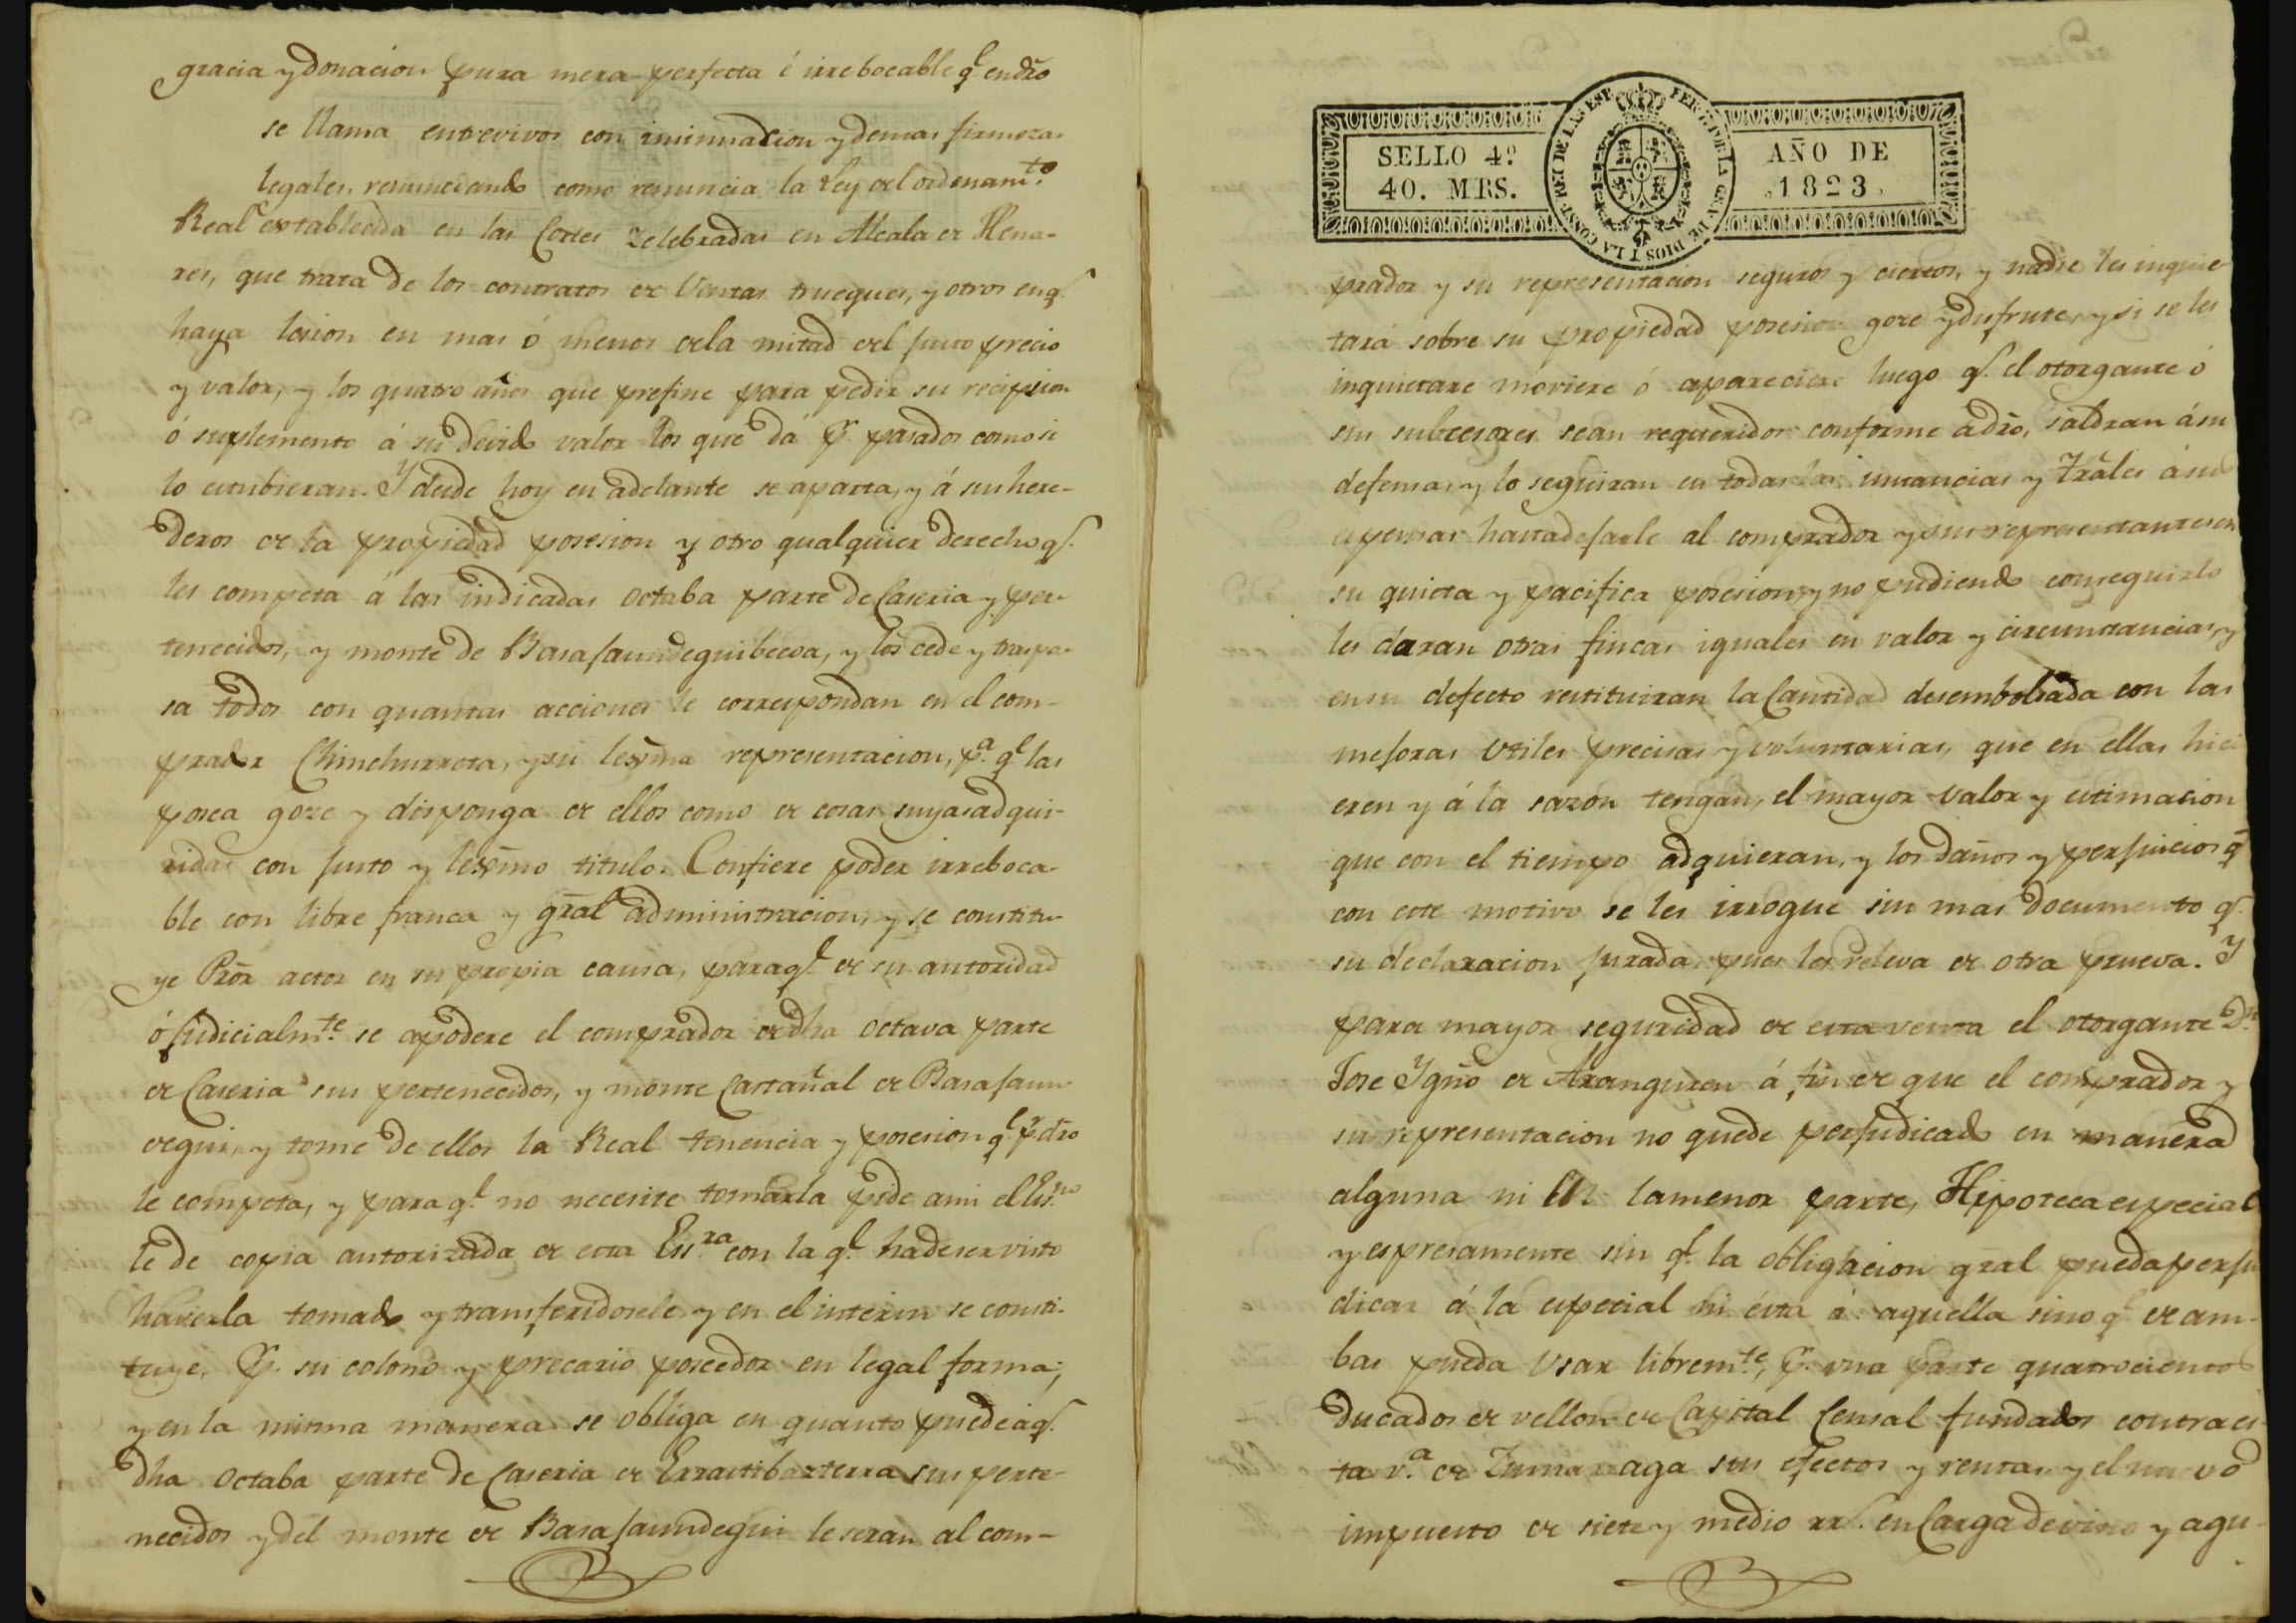 gracia y donacion pura mera perfecta é irrebocable q.e en dro
se llama entrevivos con insinuacion y demas firmezas
legales, renunciando como renuncia la Ley del ordenam.to
Real establecida en las Cortes zelebradas en Alcala de Hena-
res, que trata de los contratos de Ventas trueques, y otros en q.
haya lesion en mas ó menos de la mitad del justo precio
y valor, y los quatro años que prefine para pedir su recision
ó suplemento á su devido valor los que dá p. pasados como si
lo estubieran. Y desde hoy en adelante se aparta, y á sus here-
deros de la propiedad posesion y otro qualquier derecho q.
les competa á las indicadas octaba parte de Caseria y per-
tenecidos, y monte de Basajaundeguibecoa, y los cede y traspa-
sa todos con quantas acciones le correspondan en el com-
prador Chinchurreta, y su lexma representacion, p.a q.e las
posea goze y disponga de ellos como de cosas suyas adqui-
ridas con justo y lexmo titulo. Confiere poder irreboca-
ble con libre franca y gral administracion, y se constitu-
ye Pror actor en su propia causa, para q.e de su autoridad
ó judicialm.te se apodere el comprador de dha octava parte
de Caseria sus pertenecidos, y monte Castañal de Basajaun-
degui, y tome de ellos la Real tenencia y posesion q.e p.r dro
le competa, y para q.e no necesite tomarla pide a mi el Es.no
le de copia autorizada de esta Es.ra con la q.e ha de ser visto
haverla tomado y transferidosele, y en el interin se consti-
tuye, p. su colono y precario poseedor en legal forma;
y en la misma manera se obliga en quanto puede á q.
dha octaba parte de Caseria de Errastibarterra sus perte-
necidos y del monte de Basajaundegui le seran al com-
SELLO 4º
40. MRS.
FER. 7. POR LA GRA. DE DIOS Y LA CONST. REI DE LAS ESP.
AÑO DE
1823.
prador y su representacion seguros y ciertos, y nadie les inquie-
tará sobre su propiedad posesion goze y disfrute, y si se les
inquietare moviere ó apareciere luego q.e el otorgante ó
sus subcesores sean requeridos conforme a dro, saldran á su
defensa, y lo seguiran en todas las instancias y Trales á sus
espensas hasta dejarle al comprador y sus representantes en
su quieta y pacifica posesion, y no pudiendo conseguirlo
les daran otras fincas iguales en valor y circunstancias, y
en su defecto restituiran la Cantidad desembolsada con las
mejoras utiles precisas y voluntarias, que en ellas hici-
eren y á la sazon tengan, el mayor valor y estimacion
que con el tiempo adquieran, y los daños y perjuicios q
con este motivo se les irrogue sin mas documento q.
su declaracion jurada, pues les releva de otra prueva. Y
para mayor seguridad de esta venta el otorgante D.n
Jose Ygño de Aranguren á fin de que el comprador y
su representacion no quede perjudicado en manera
alguna ni en la menor parte, Hipoteca especial
y espresamente sin q.e la obligacion gral pueda perju-
dicar á la especial ni ésta á aquella sino q.e de am-
bas pueda usar librem.te, p. una parte quatrocientos
Ducados de vellon de Capital Censal fundados contra es-
ta v.a de Zumarraga sus efectos y rentas, y el nuevo
impuesto de siete y medio rr.s en Carga de vino y agu-